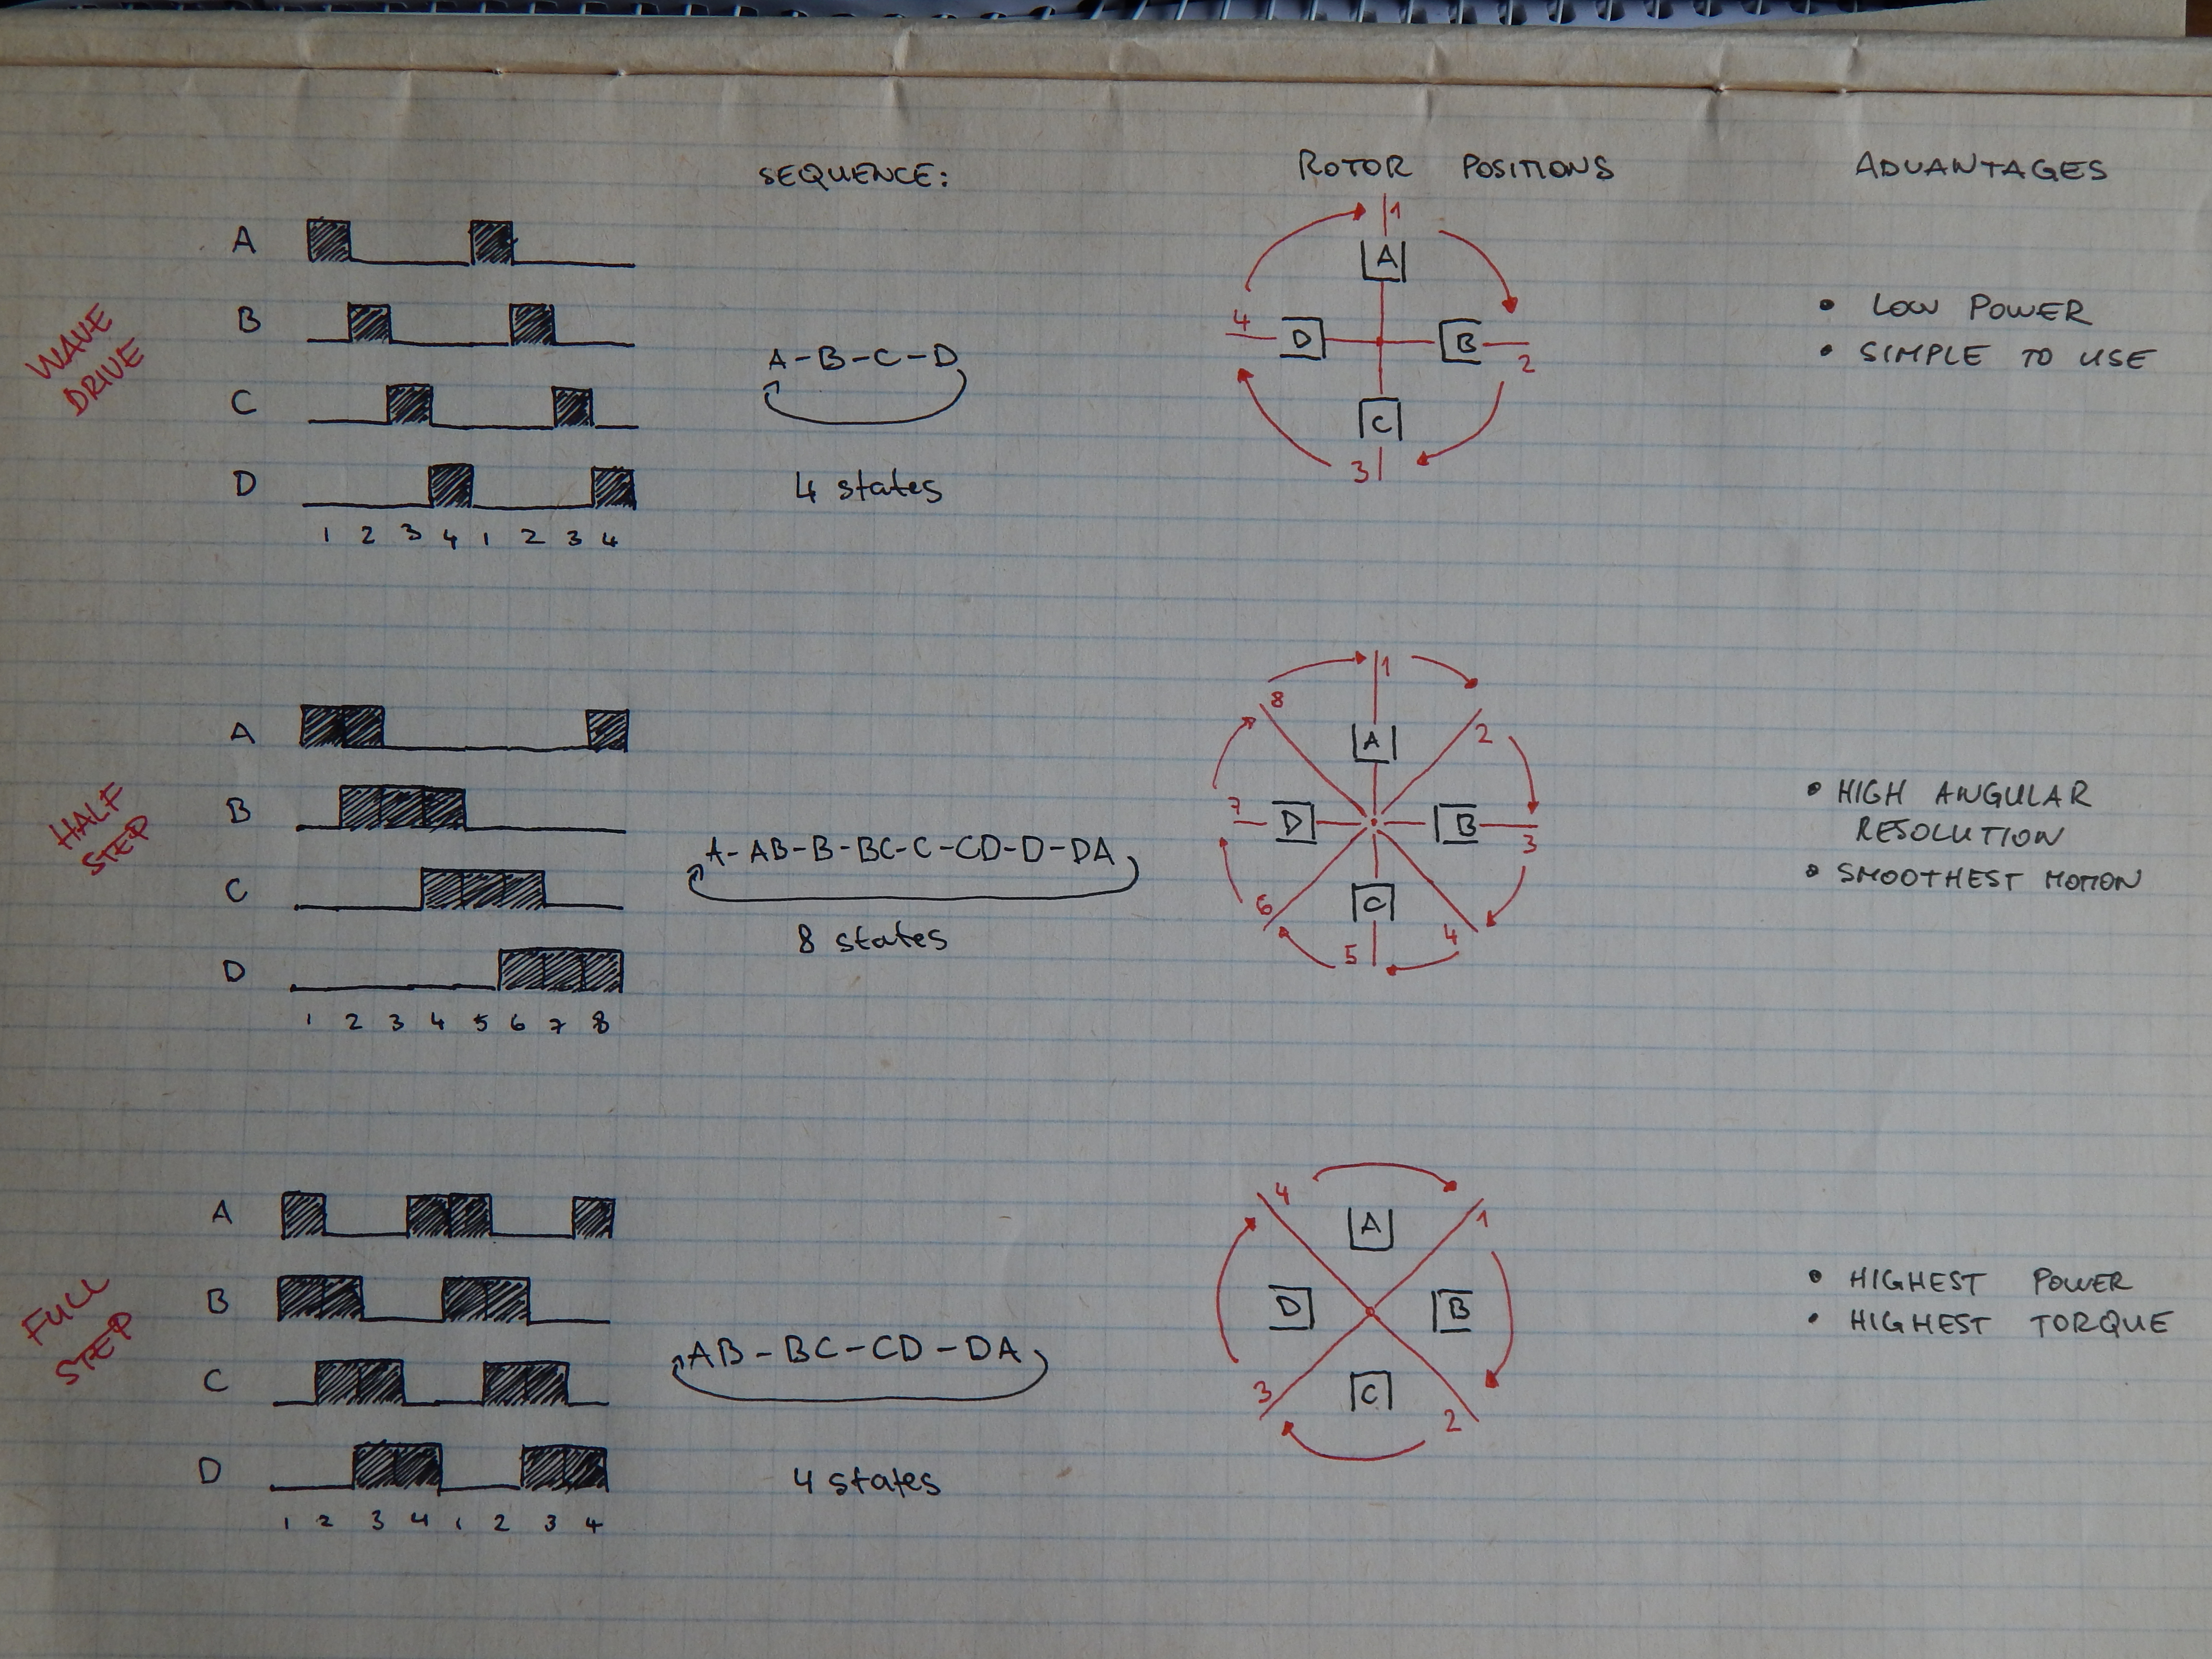 SEQUENCE:
ROTOR POSITIONS
ADVANTAGES
WAVE
DRIVE
A
B
C
D
1 2 3 4 1 2 3 4
A-B-C-D
4 states
1
A
4 D B 2
C
3
• LOW POWER
• SIMPLE TO USE
HALF
STEP
A
B
C
D
1 2 3 4 5 6 7 8
A-AB-B-BC-C-CD-D-DA
8 states
1
8
A 2
7 D B 3
C
6 5 4
• HIGH ANGULAR
RESOLUTION
• SMOOTHEST MOTION
FULL
STEP
A
B
C
D
1 2 3 4 1 2 3 4
AB-BC-CD-DA
4 states
4 A 1
D B
3 C 2
• HIGHEST POWER
• HIGHEST TORQUE